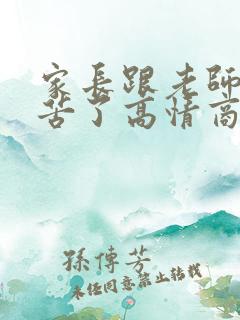 家長跟老師
苦了高情商
孫傳芳
未经同意禁止转载